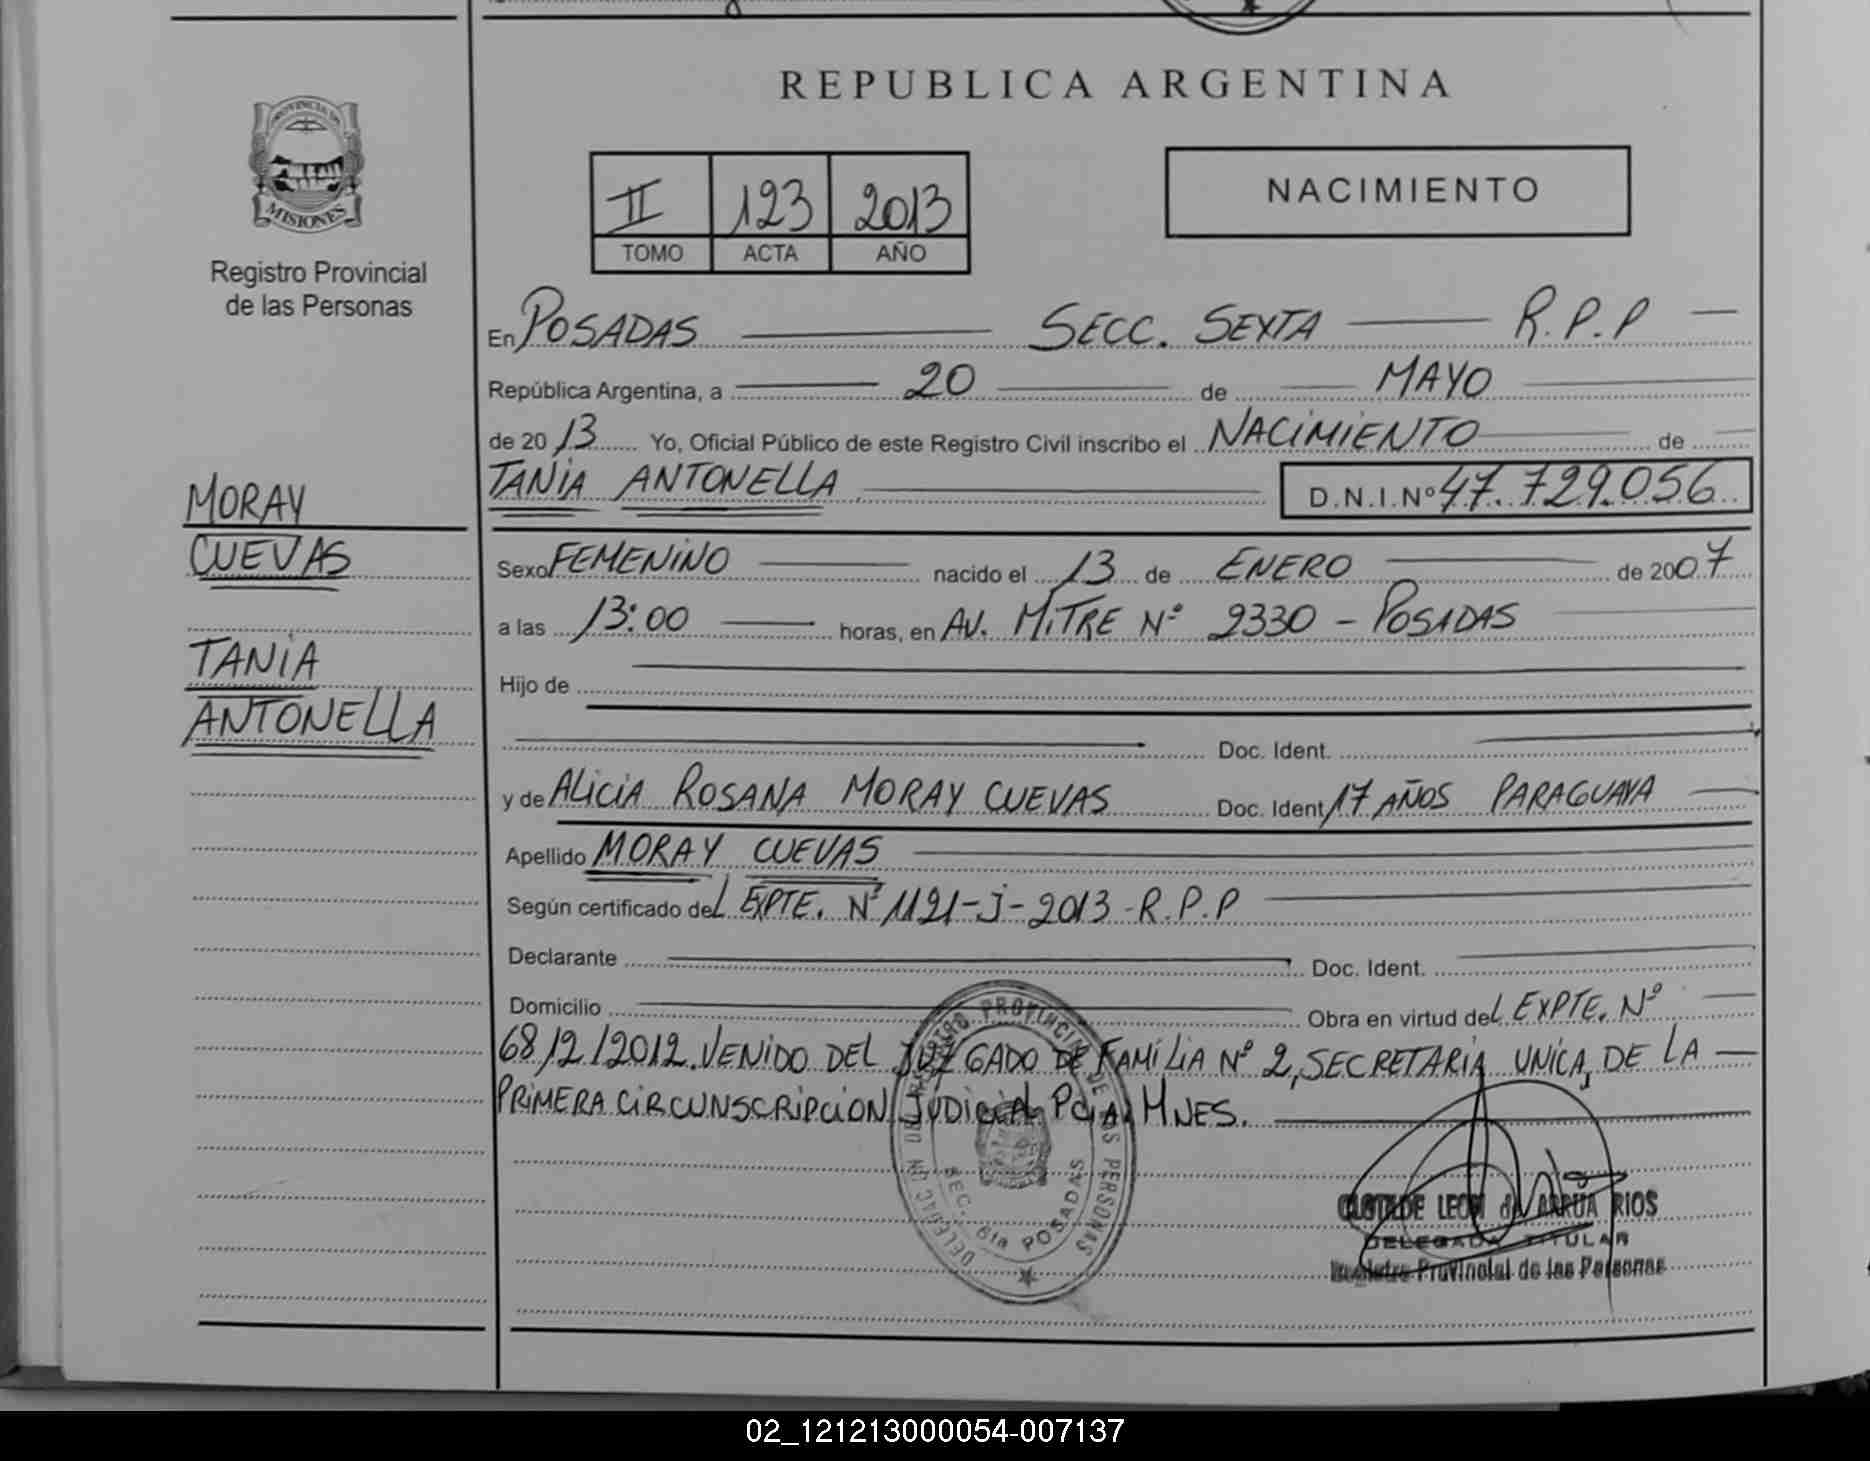 REPUBLICA ARGENTINA
PROVINCIA DE
MISIONES
Registro Provincial
de las Personas
II 123 2013
TOMO ACTA AÑO
NACIMIENTO
En POSADAS SECC. SEXTA R.P.P
República Argentina, a 20 de MAYO
de 20 13 Yo, Oficial Público de este Registro Civil inscribo el NACIMIENTO de
TANIA ANTONELLA D.N.I.Nº 47.729.056
MORAY
CUEVAS
TANIA
ANTONELLA
Sexo FEMENINO nacido el 13 de ENERO de 2007
a las 13:00 horas, en AV. MITRE Nº 2330 - POSADAS
Hijo de
Doc. Ident.
y de ALICIA ROSANA MORAY CUEVAS Doc. Ident 17 AÑOS PARAGUAYA
Apellido MORAY CUEVAS
Según certificado del EXPTE. Nº 1121-J-2013-R.P.P
Declarante Doc. Ident.
Domicilio Obra en virtud del EXPTE. Nº
68/2/2012. VENIDO DEL JUZGADO DE FAMILIA Nº 2, SECRETARIA UNICA, DE LA
PRIMERA CIRCUNSCRIPCION JUDICIAL PCIA. MNES.
REGISTRO PROVINCIAL DE LAS PERSONAS
DELEGACION
SEC. 6ta POSADAS
CLOTILDE LEON de ARRUA RIOS
DELEGADA TITULAR
Registro Provincial de las Personas
02_121213000054-007137